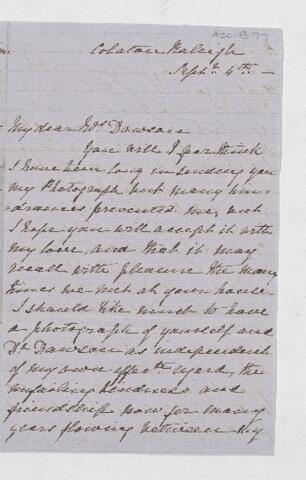 Acc. 1377
Colaton Raleigh
Septr. 4th. —
My dear Mrs Dawson
You will I fear think
I have been long in sending you
my Photograph but many hin-
drances prevented me, but
I hope you will accept it with
my love, and that it may
recall with pleasure the many
times we met at your house.
I should like much to have
a photograph of yourself and
Dr. Dawson as independent
of my own affecte. regard, the
unfailing kindness and
friendship now for many
years flowing between my